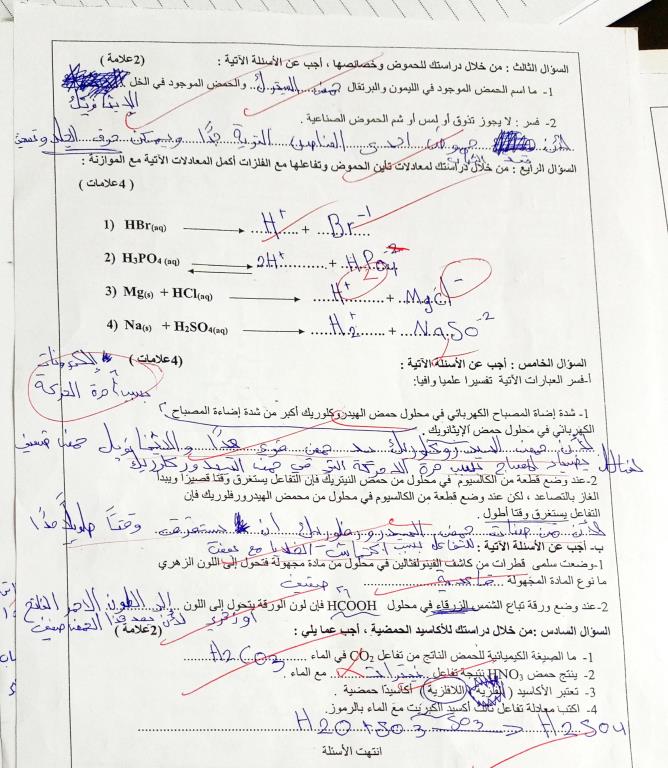 السؤال الثالث : من خلال دراستك للحموض وخصائصها ، أجب عن الأسئلة الآتية : (2علامة )
1- ما اسم الحمض الموجود في الليمون والبرتقال حمض الستريك والحمض الموجود في الخل
الإيثانويك
2- فسر : لا يجوز تذوق أو لمس أو شم الحموض الصناعية .
لأن حموض احدى العناصر القوية جدًا ويمكن حرق الجلد
السؤال الرابع : من خلال دراستك لمعادلات تأين الحموض وتفاعلها مع الفلزات أكمل المعادلات الآتية مع الموازنة :
( 4علامات )
1) HBr(aq) → H+ + Br-1
2) H3PO4 (aq) ⇌ 2H+ + HPO4-2
3) Mg(s) + HCl(aq) → H+ + MgCl-
4) Na(s) + H2SO4(aq) → H2+ + NaSO-2
السؤال الخامس : أجب عن الأسئلة الآتية : (4علامات )
أ-فسر العبارات الآتية تفسيرا علميا وافيا:
بسبب حرة الحركة
1- شدة إضاة المصباح الكهربائي في محلول حمض الهيدروكلوريك أكبر من شدة إضاءة المصباح
الكهربائي في محلول حمض الإيثانويك .
لأن حمض الهيدروكلوريك حمض قوي جدًا والايثانويك حمض ضعيف
2-عند وضع قطعة من الكالسيوم في محلول من حمض النيتريك فإن التفاعل يستغرق وقتا قصيرا ويبدأ
الغاز بالتصاعد ، لكن عند وضع قطعة من الكالسيوم في محلول من محمض الهيدروفلوريك فإن
التفاعل يستغرق وقتا أطول .
لأن من صفات حمض الهيدروفلوريك ان يستغرق وقتًا طويلًا جدًا
ب- أجب عن الأسئلة الآتية :
1-وضعت سلمى قطرات من كاشف الفينولفثالين في محلول من مادة مجهولة فتحول إلى اللون الزهري
ما نوع المادة المجهولة
2-عند وضع ورقة تباع الشمس الزرقاء في محلول HCOOH فإن لون الورقة يتحول إلى اللون إلى اللون الاحمر
السؤال السادس :من خلال دراستك للأكاسيد الحمضية ، أجب عما يلي : (2علامة )
1- ما الصيغة الكيميائية للحمض الناتج من تفاعل CO2 في الماء H2CO3
2- ينتج حمض HNO3 نتيجة تفاعل مع الماء .
3- تعتبر الأكاسيد ( الفلزية ، اللافلزية ) أكاسيدًا حمضية .
4. اكتب معادلة تفاعل ثالث أكسيد الكبريت مع الماء بالرموز.
H2O + SO3 → H2SO4
انتهت الأسئلة